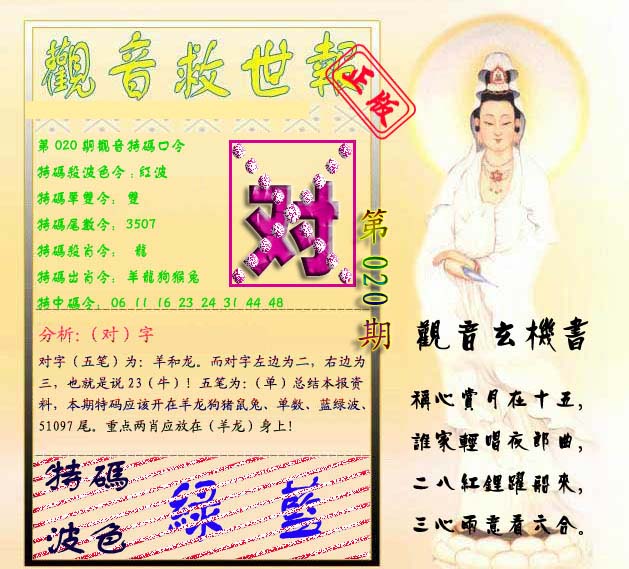 觀音救世報
正版
第020期觀音特碼口令
特碼殺波色令：紅波
特碼單雙令： 雙
特碼尾數令：3507
特碼殺肖令： 龍
特碼出肖令：羊龍狗猴兔
特中碼令：06 11 16 23 24 31 44 48
对
第020期
分析:（对）字
对字（五笔）为：羊和龙。而对字左边为二，右边为
三，也就是说23（牛）！五笔为：（单）总结本报资
料，本期特码应该开在羊龙狗猪鼠兔、单数、蓝绿波、
51097尾。重点两肖应放在（羊龙）身上！
特碼
波色
綠 藍
觀音玄機書
稱心賞月在十五，
誰家輕唱夜郎曲，
二八紅鯉躍船來，
三心兩意看六合。